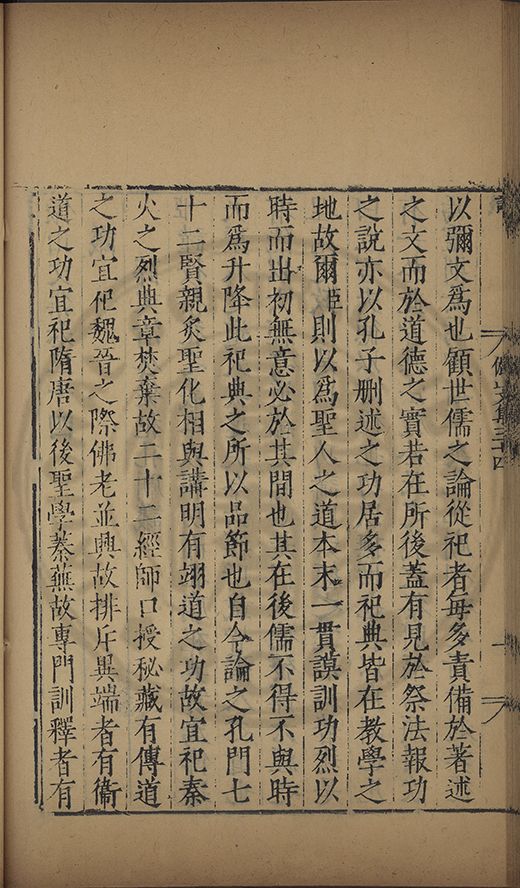 以彌文爲也顧世儒之論從祀者每多責備於著述
之文而於道德之實若在所後蓋有見於祭法報功
之說亦以孔子刪述之功居多而祀典皆在教學之
地故爾臣則以爲聖人之道本末一貫謨訓功烈以
時而出初無意必於其間也其在後儒不得不與時
而爲升降此祀典之所以品節也自今論之孔門七
十二賢親炙聖化相與講明有翊道之功故宜祀秦
火之烈典章焚棄故二十二經師口授秘藏有傳道
之功宜祀魏晉之際佛老並興故排斥異端者有衞
道之功宜祀隋唐以後聖學蓁蕪故專門訓釋者有